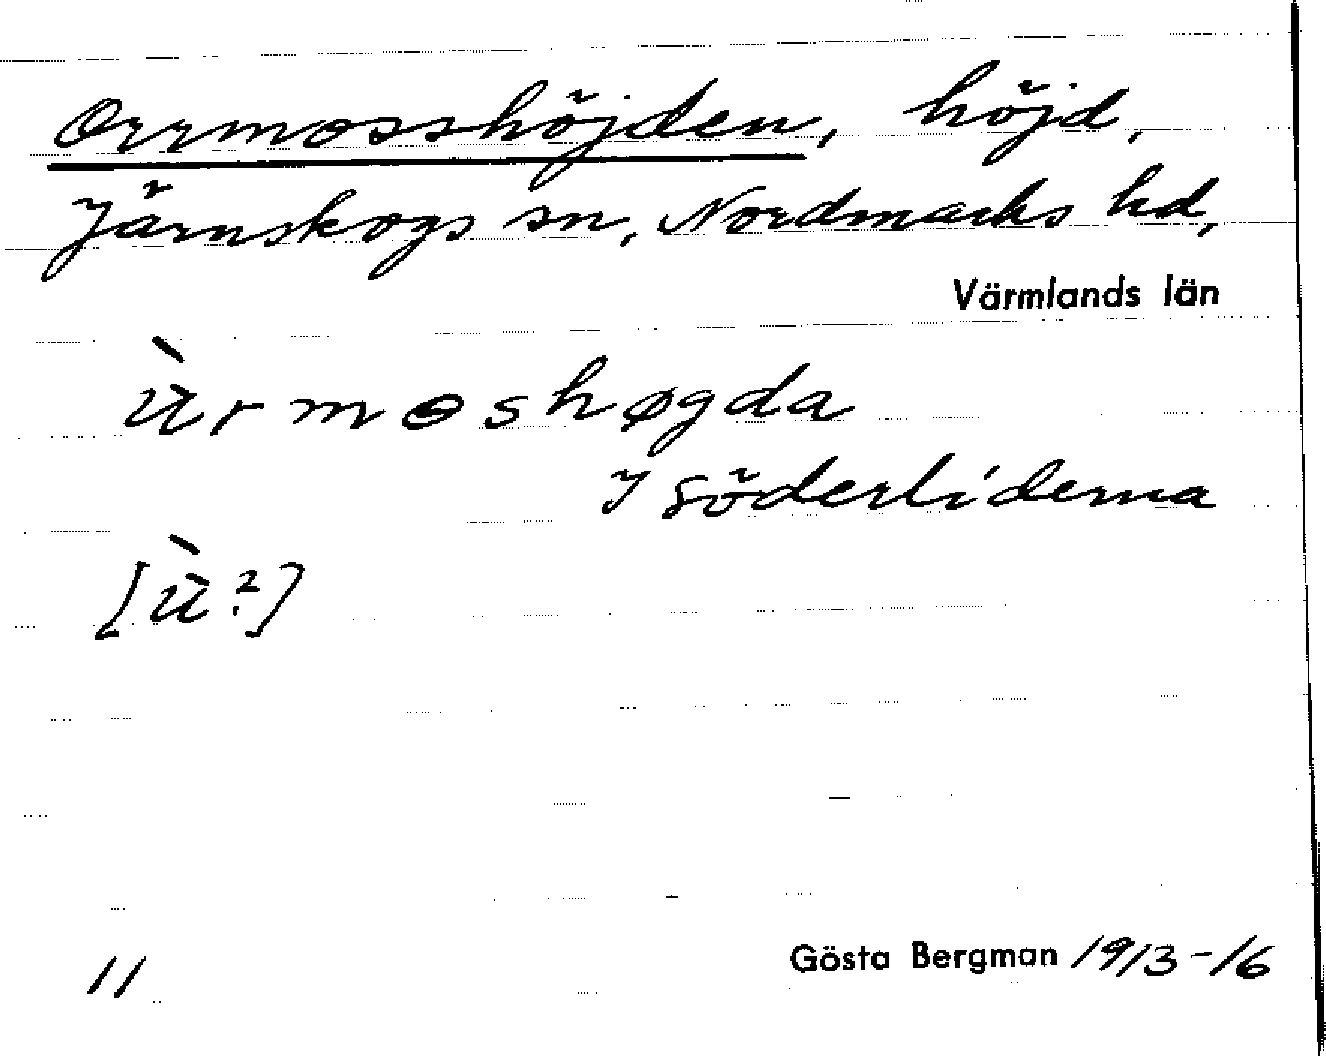 Orrmosshöjden, höjd,
Järnskogs sn, Nordmarks hd,
Värmlands län
ùrmɵshøgda
I söderliderna
[ù?]
11
Gösta Bergman 1913-16